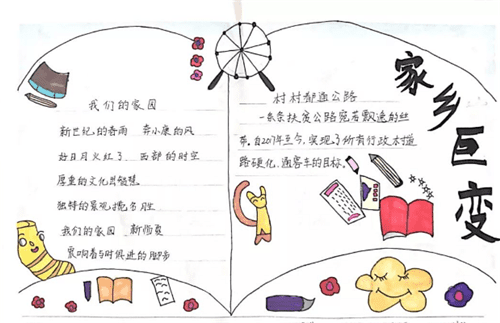 家乡巨变
我们的家园
新世纪的春雨 奔小康的风
好日月火红了 西部的时空
厚重的文化
独特的景观 名胜
我们的家园 新
震响着与时俱进的脚步
村村都通公路
一条条扶贫公路宛若飘逸的丝
带,自2017年至今,实现了所有行政村道
路硬化,通客车的目标.